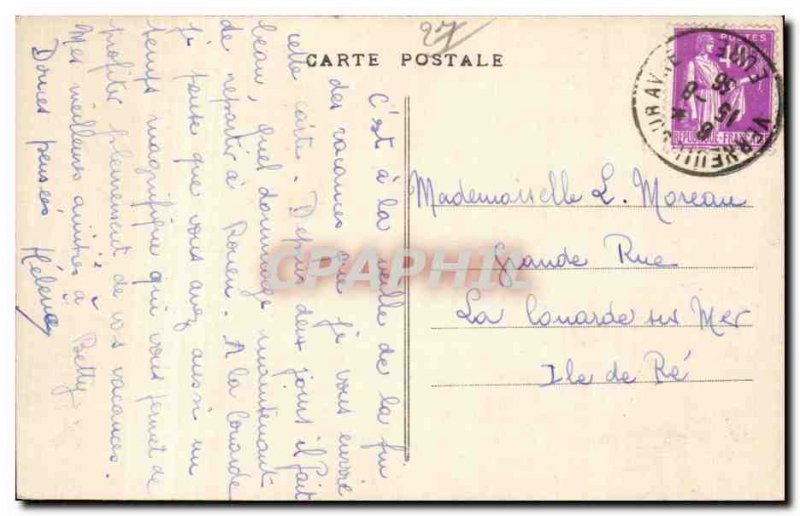 27
CARTE POSTALE
POSTES
REPUBLIQUE FRANCAISE
VERNEUIL SUR AVRE
EURE
15 -8
36
C'est à la veille de la fin
des vacances que je vous envoie
cette carte. Depuis deux jours il fait
beau, quel dommage maintenant
de repartir à Rouen. A la Conarde
je pense que vous avez aussi un
temps magnifique qui vous permet de
profiter pleinement de vos vacances.
Mes meilleures amitiés à Betty
Douces pensées Hélène
Mademoiselle L. Moreau
Grande Rue
La Conarde sur Mer
Ile de Ré
CPAPHIL